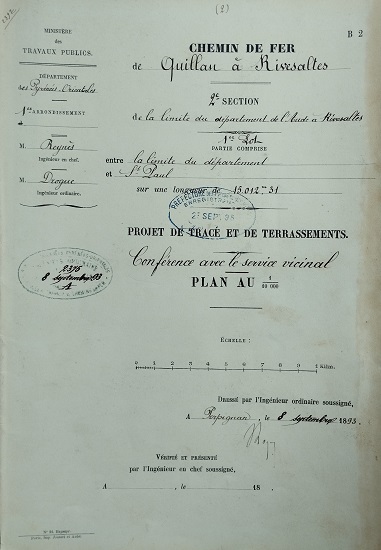 (2)
B 2
MINISTÈRE
des
TRAVAUX PUBLICS.
DÉPARTEMENT
des Pyrénées-Orientales
1er ARRONDISSEMENT
M. Reynès
Ingénieur en chef.
M. Drogue
Ingénieur ordinaire.
2376
8 septembre 93
A
CHEMIN DE FER
de Quillan à Rivesaltes
2e SECTION
de la limite du département de l'Aude à Rivesaltes
1er Lot
PARTIE COMPRISE
entre la limite du département
et St Paul
sur une longueur de 15.012m 31
ENREGISTRÉ
SEPT. 93
PROJET DE TRACÉ ET DE TERRASSEMENTS.
Conférence avec le service vicinal
PLAN AU 1/10 000
ÉCHELLE:
0 1 2 3 4 5 6 7 8 9 1 Kilom.
Dressé par l'Ingénieur ordinaire soussigné,
A Perpignan, le 8 septembre 1893.
VÉRIFIÉ ET PRÉSENTÉ
par l'Ingénieur en chef soussigné,
A , le 18 .